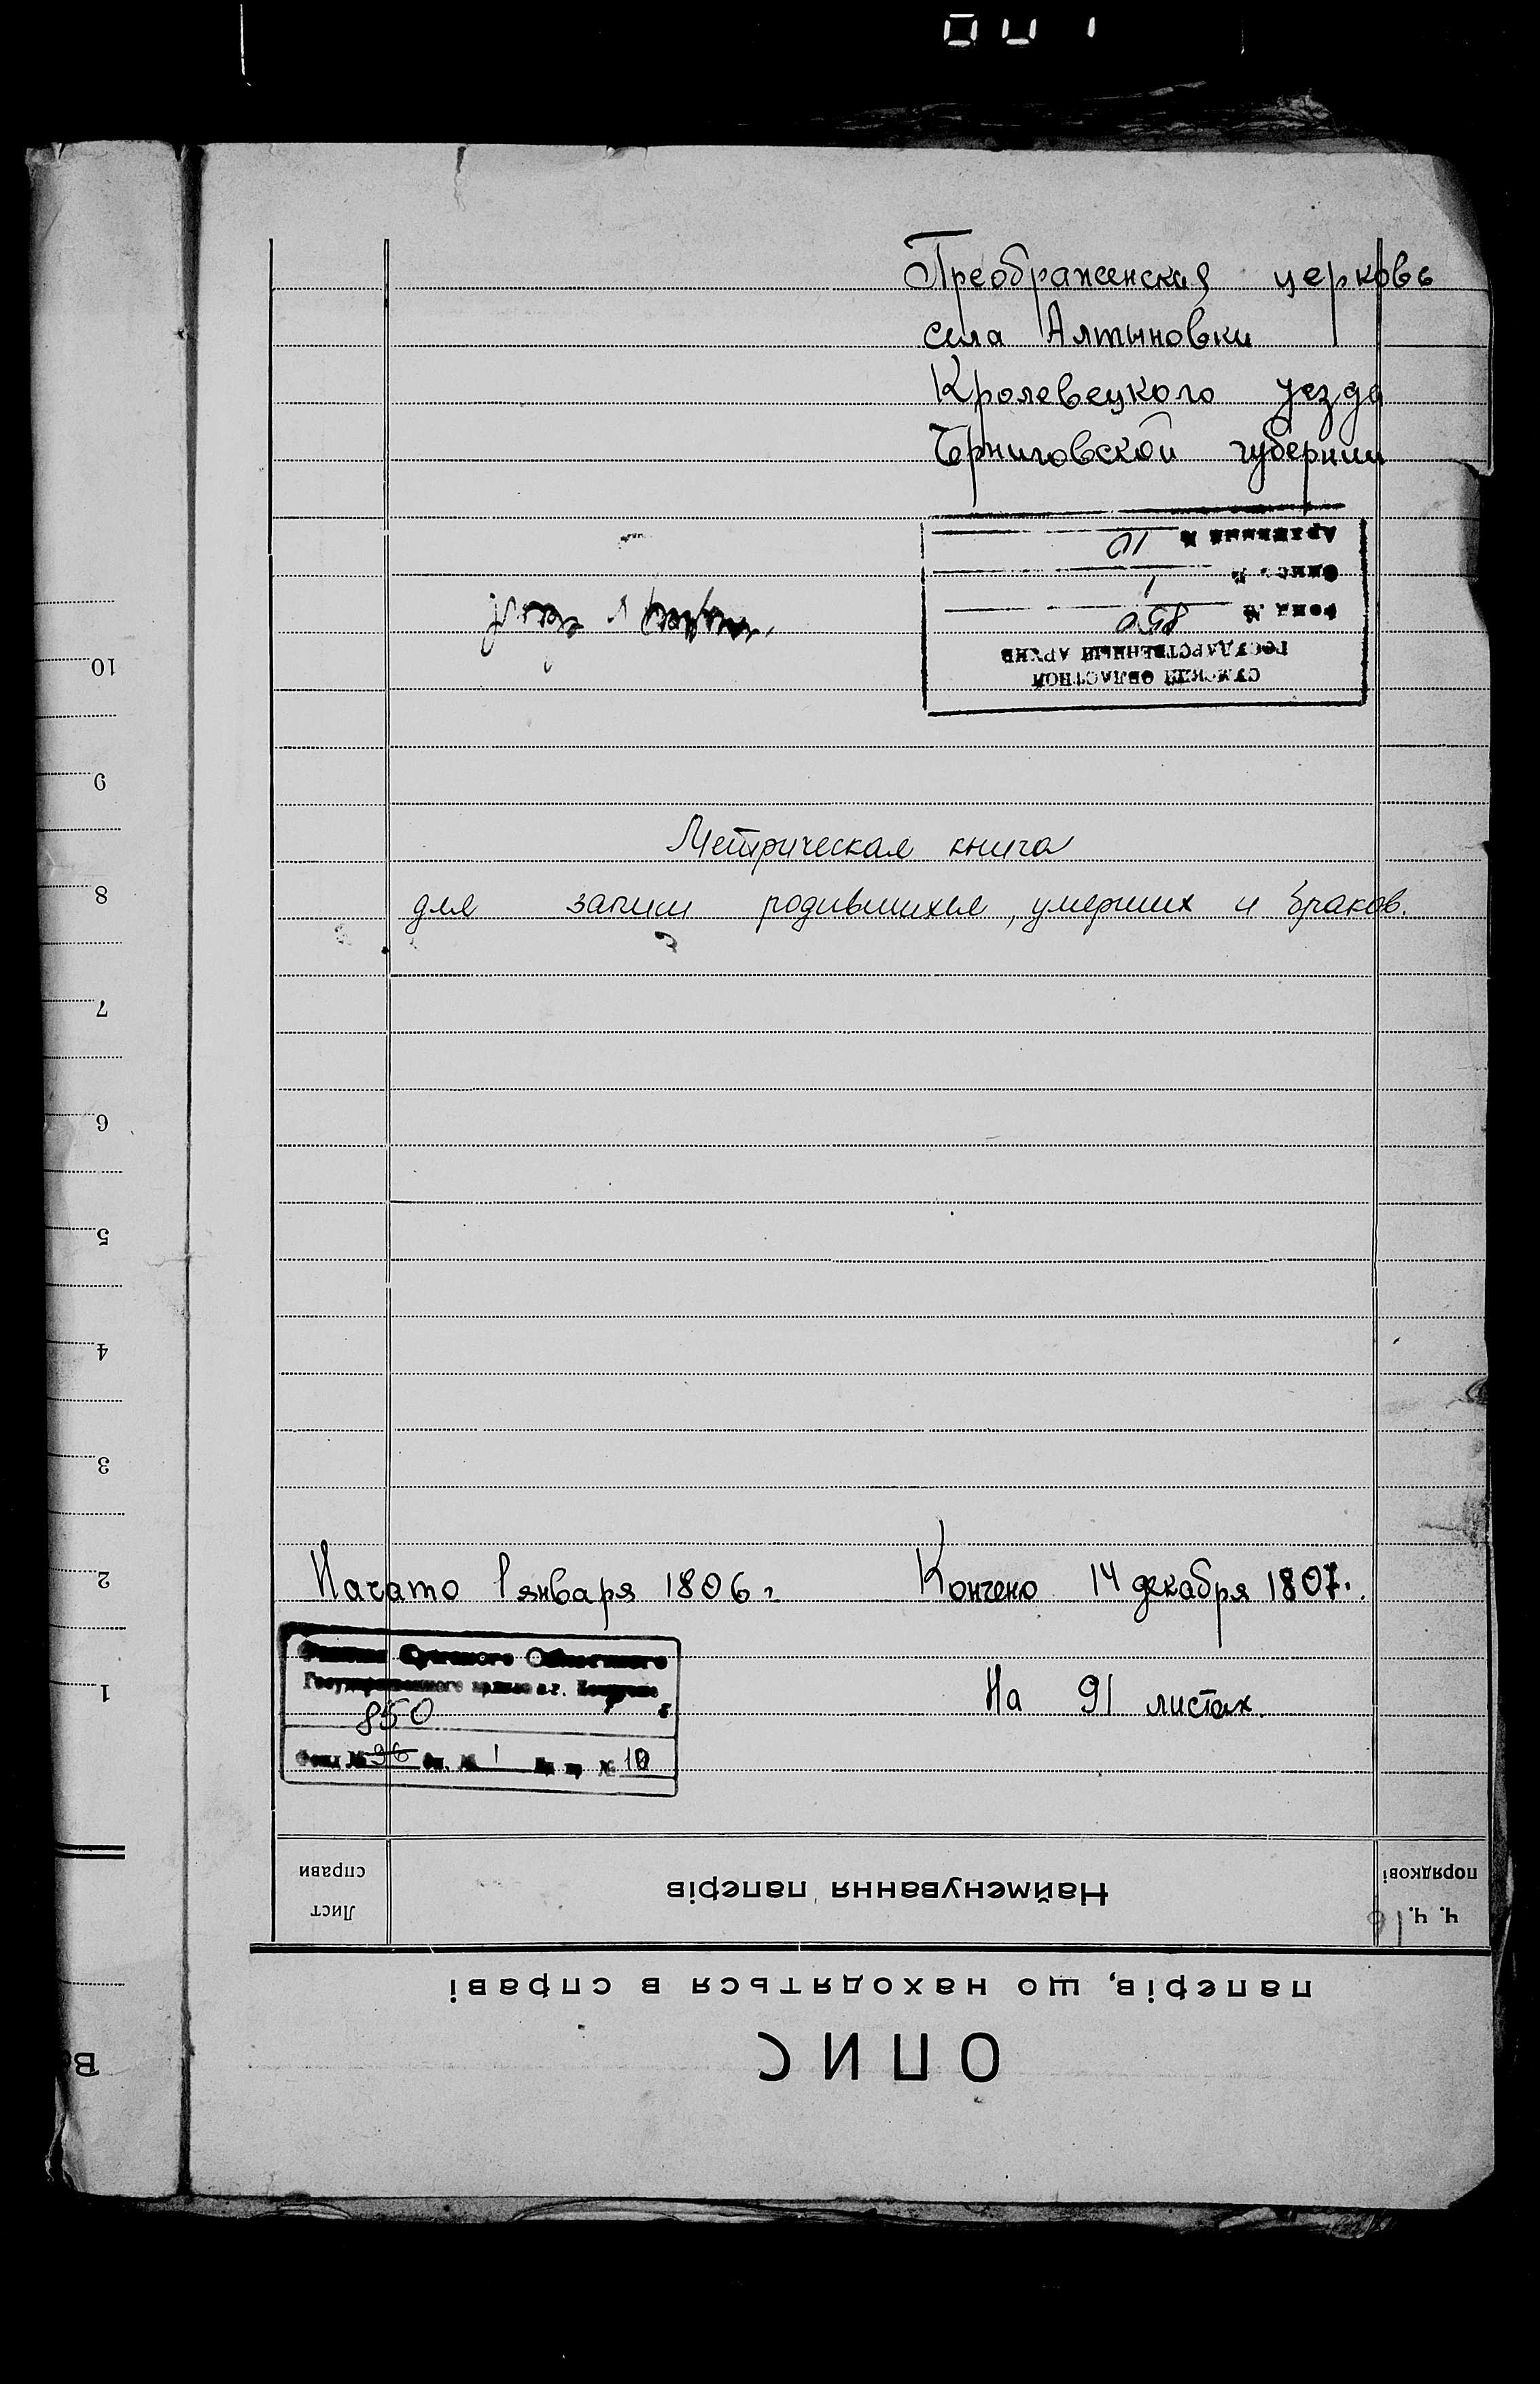 Преображенская церковь
села Алтыновки
Кролевецкого уезда
Черниговской губернии
СУМСКИЙ ОБЛАСТНОЙ
ГОСУДАРСТВЕННЫЙ АРХИВ
Фонд № 850
Опись № 1
Архивный № 10
Метрическая книга
для записи родившихся, умерших и браков.
Начато 1 января 1806 г.
Кончено 14 декабря 1807.
На 91 листах.
Филиал Сумского Областного
Государственного архива в г.
850
Фонд № 96 Оп. № 1 № 10
ОПИС
паперів, що находяться в справі
Ч. Ч. порядкові
Найменування паперів
Лист справи
1
2
3
4
5
6
7
8
9
10
В